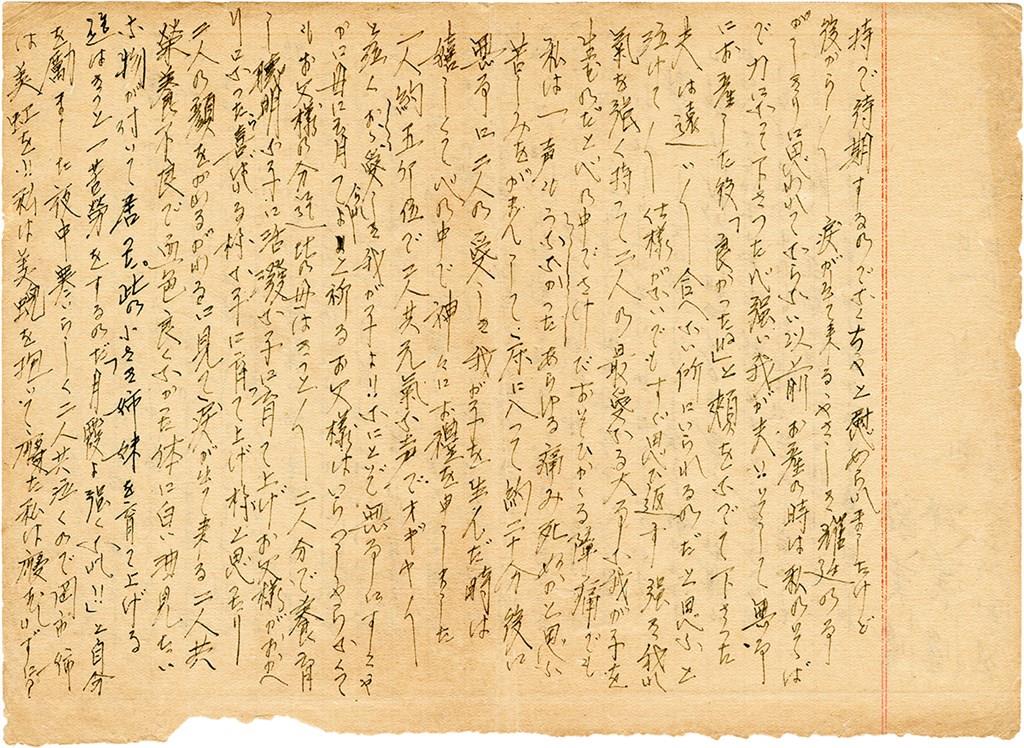 持で待期するのでなくちやと慰められましたけど
後から〱涙が出て来るやさしき
がしきり思はれてならない以前お産の時は私のそば
で力になつて下さつた心強い我が夫‼そして無事
にお産した後「良かつたね」と頬をなでて下さつた
夫は遠い〱合へない所にいられるのだと思ふと
泣けて〱仕様がないでもすぐ思ひ返す強き我が
気を強く持つて二人の最愛なる大事な我が子を
生むのだと心の中でさけんだおそひかゝる陣痛でも
私は一声も出さなかつたあらゆる痛み死ぬかと思ふ
苦しみをがまんして床に入つて約二十分後に
無事に二人の愛しき我が子を生んだ時は
嬉しくて心の中で神々にお礼を申しました
一人約五分位で二人共元気な声でオギヤー〱
と泣くから愛らしき我が子よ‼なにとぞ無事にすこや
かに母に育てよと祈るお父様はいらつしやらなくて
もお父様の分迄此の母はきつと〱二人分で養育
し聡明な子に活潑な子に育て上げお父様がお
りになつた喜ばれる様な子に育て上げ様と思つたり
二人の顔をながめるがわるに見て涙が出て来る二人共
栄養不良で面色良くなかつた体に白い
な物が付いて居た。此の小さき姉妹を育て上げる
迄はきつと一苦労をするのだ「月霞よ強くなれ‼」と自分
を励ました夜中寒いらしく二人共泣くので岡お姉
は美虹を‼私は美蜺を抱いて寝た私は寝もせずに?